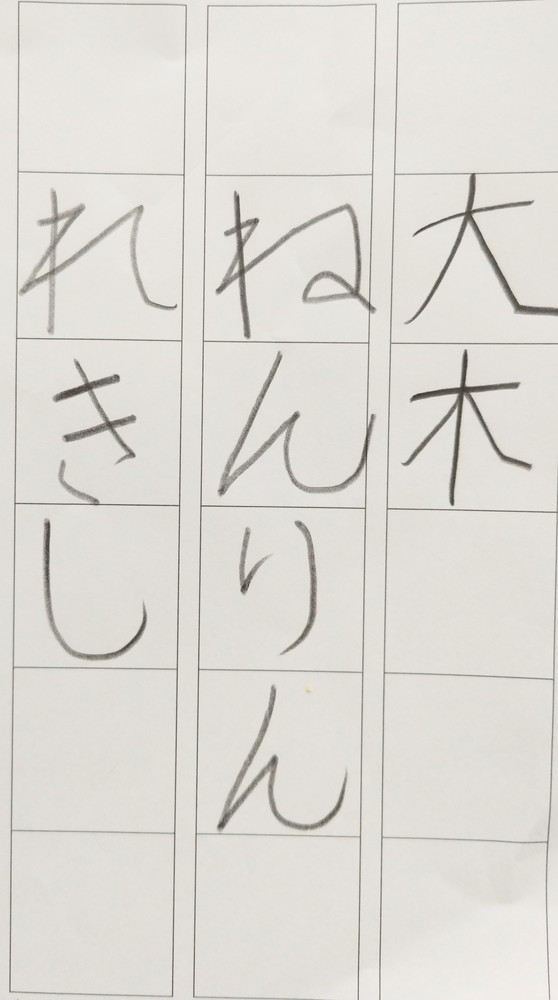 大木
ねんりん
れきし